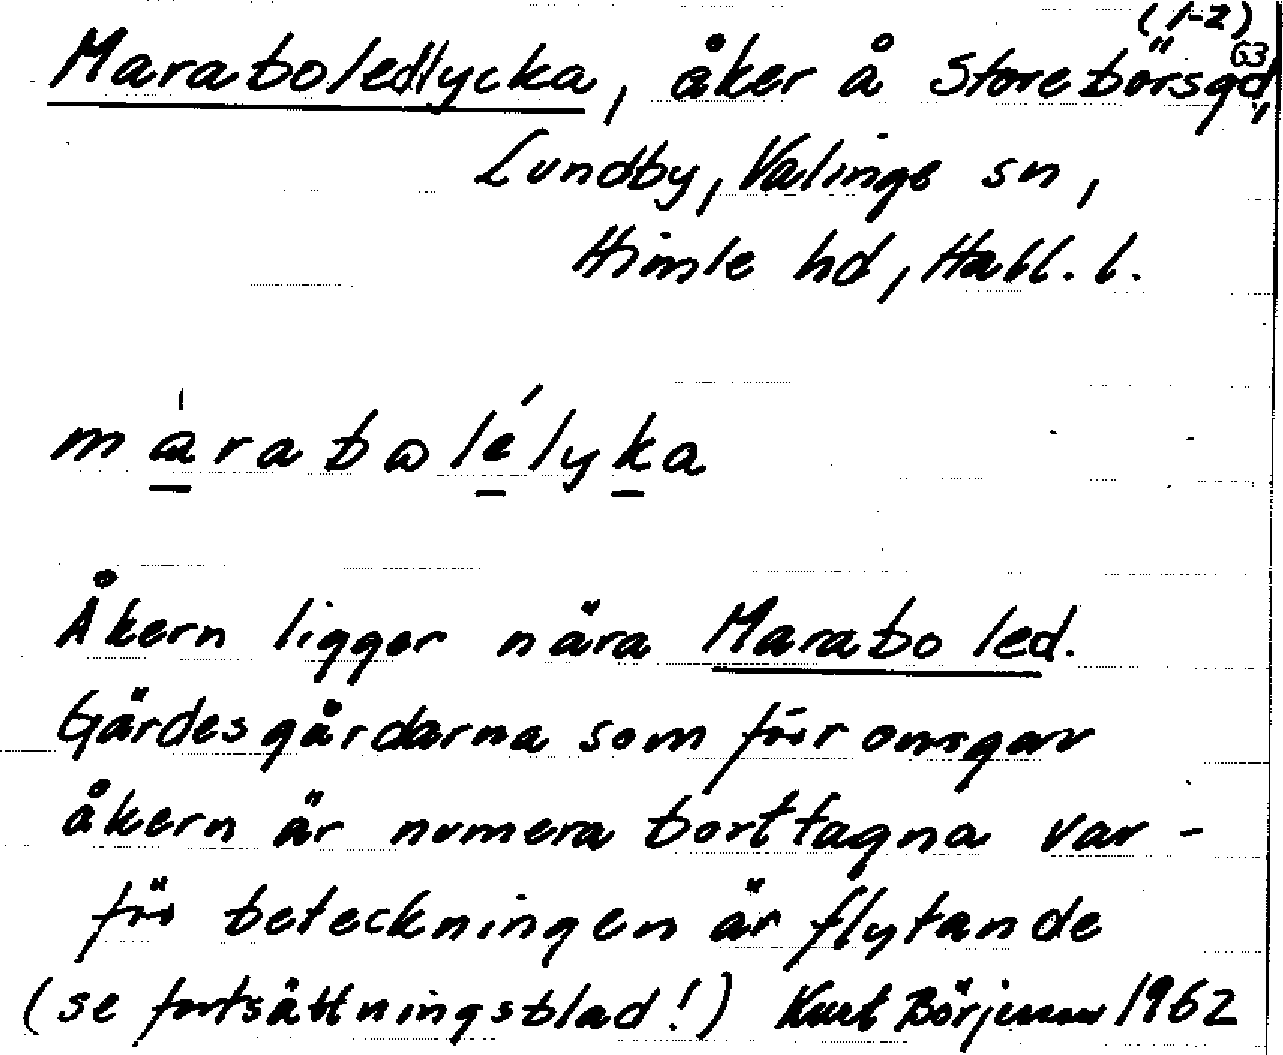 (1-2)
63
Maraboledlycka, åker å Storebörsgd,
Lundby, Valinge sn,
Himle hd, Hall. l.
márabɷlélyka
Åkern ligger nära Marabo led.
Gärdesgårdarna som förr omgav
åkern är numera borttagna var-
för beteckningen är flytande
(se fortsättningsblad!) Kurt Börjesson 1962